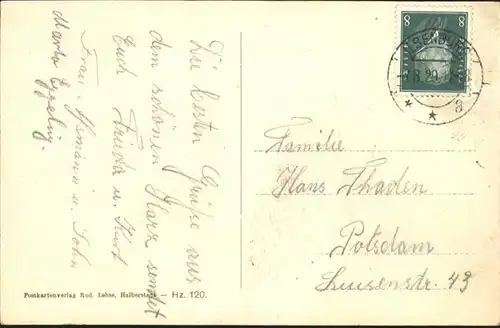 Die besten Grüße aus
dem schönen Harz sendet
Euch Frieda u. Kurt
Frau u. Sohn
Marta
Familie
Hans Thaden
Potsdam
Luisenstr. 43
8 8
29
a
Postkartenverlag Rud. Lohse, Halberstadt Hz. 120.